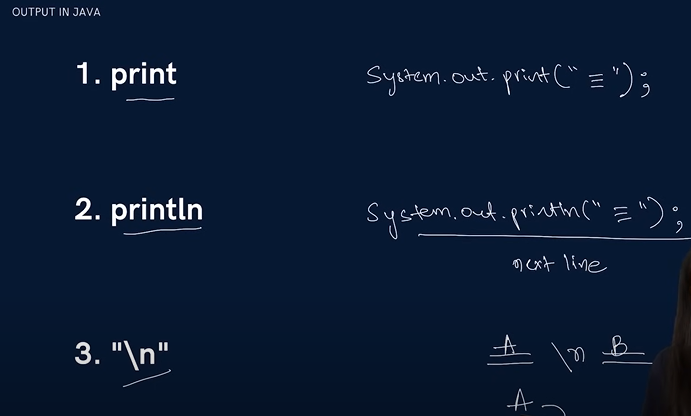 OUTPUT IN JAVA
1. print
System.out.print("≡");
2. println
System.out.println("≡");
next line
3. "\n"
A \n B
A